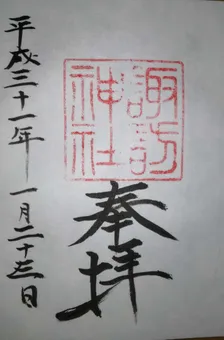 諏訪
神社
奉拝
平成三十一年 一月二十三日